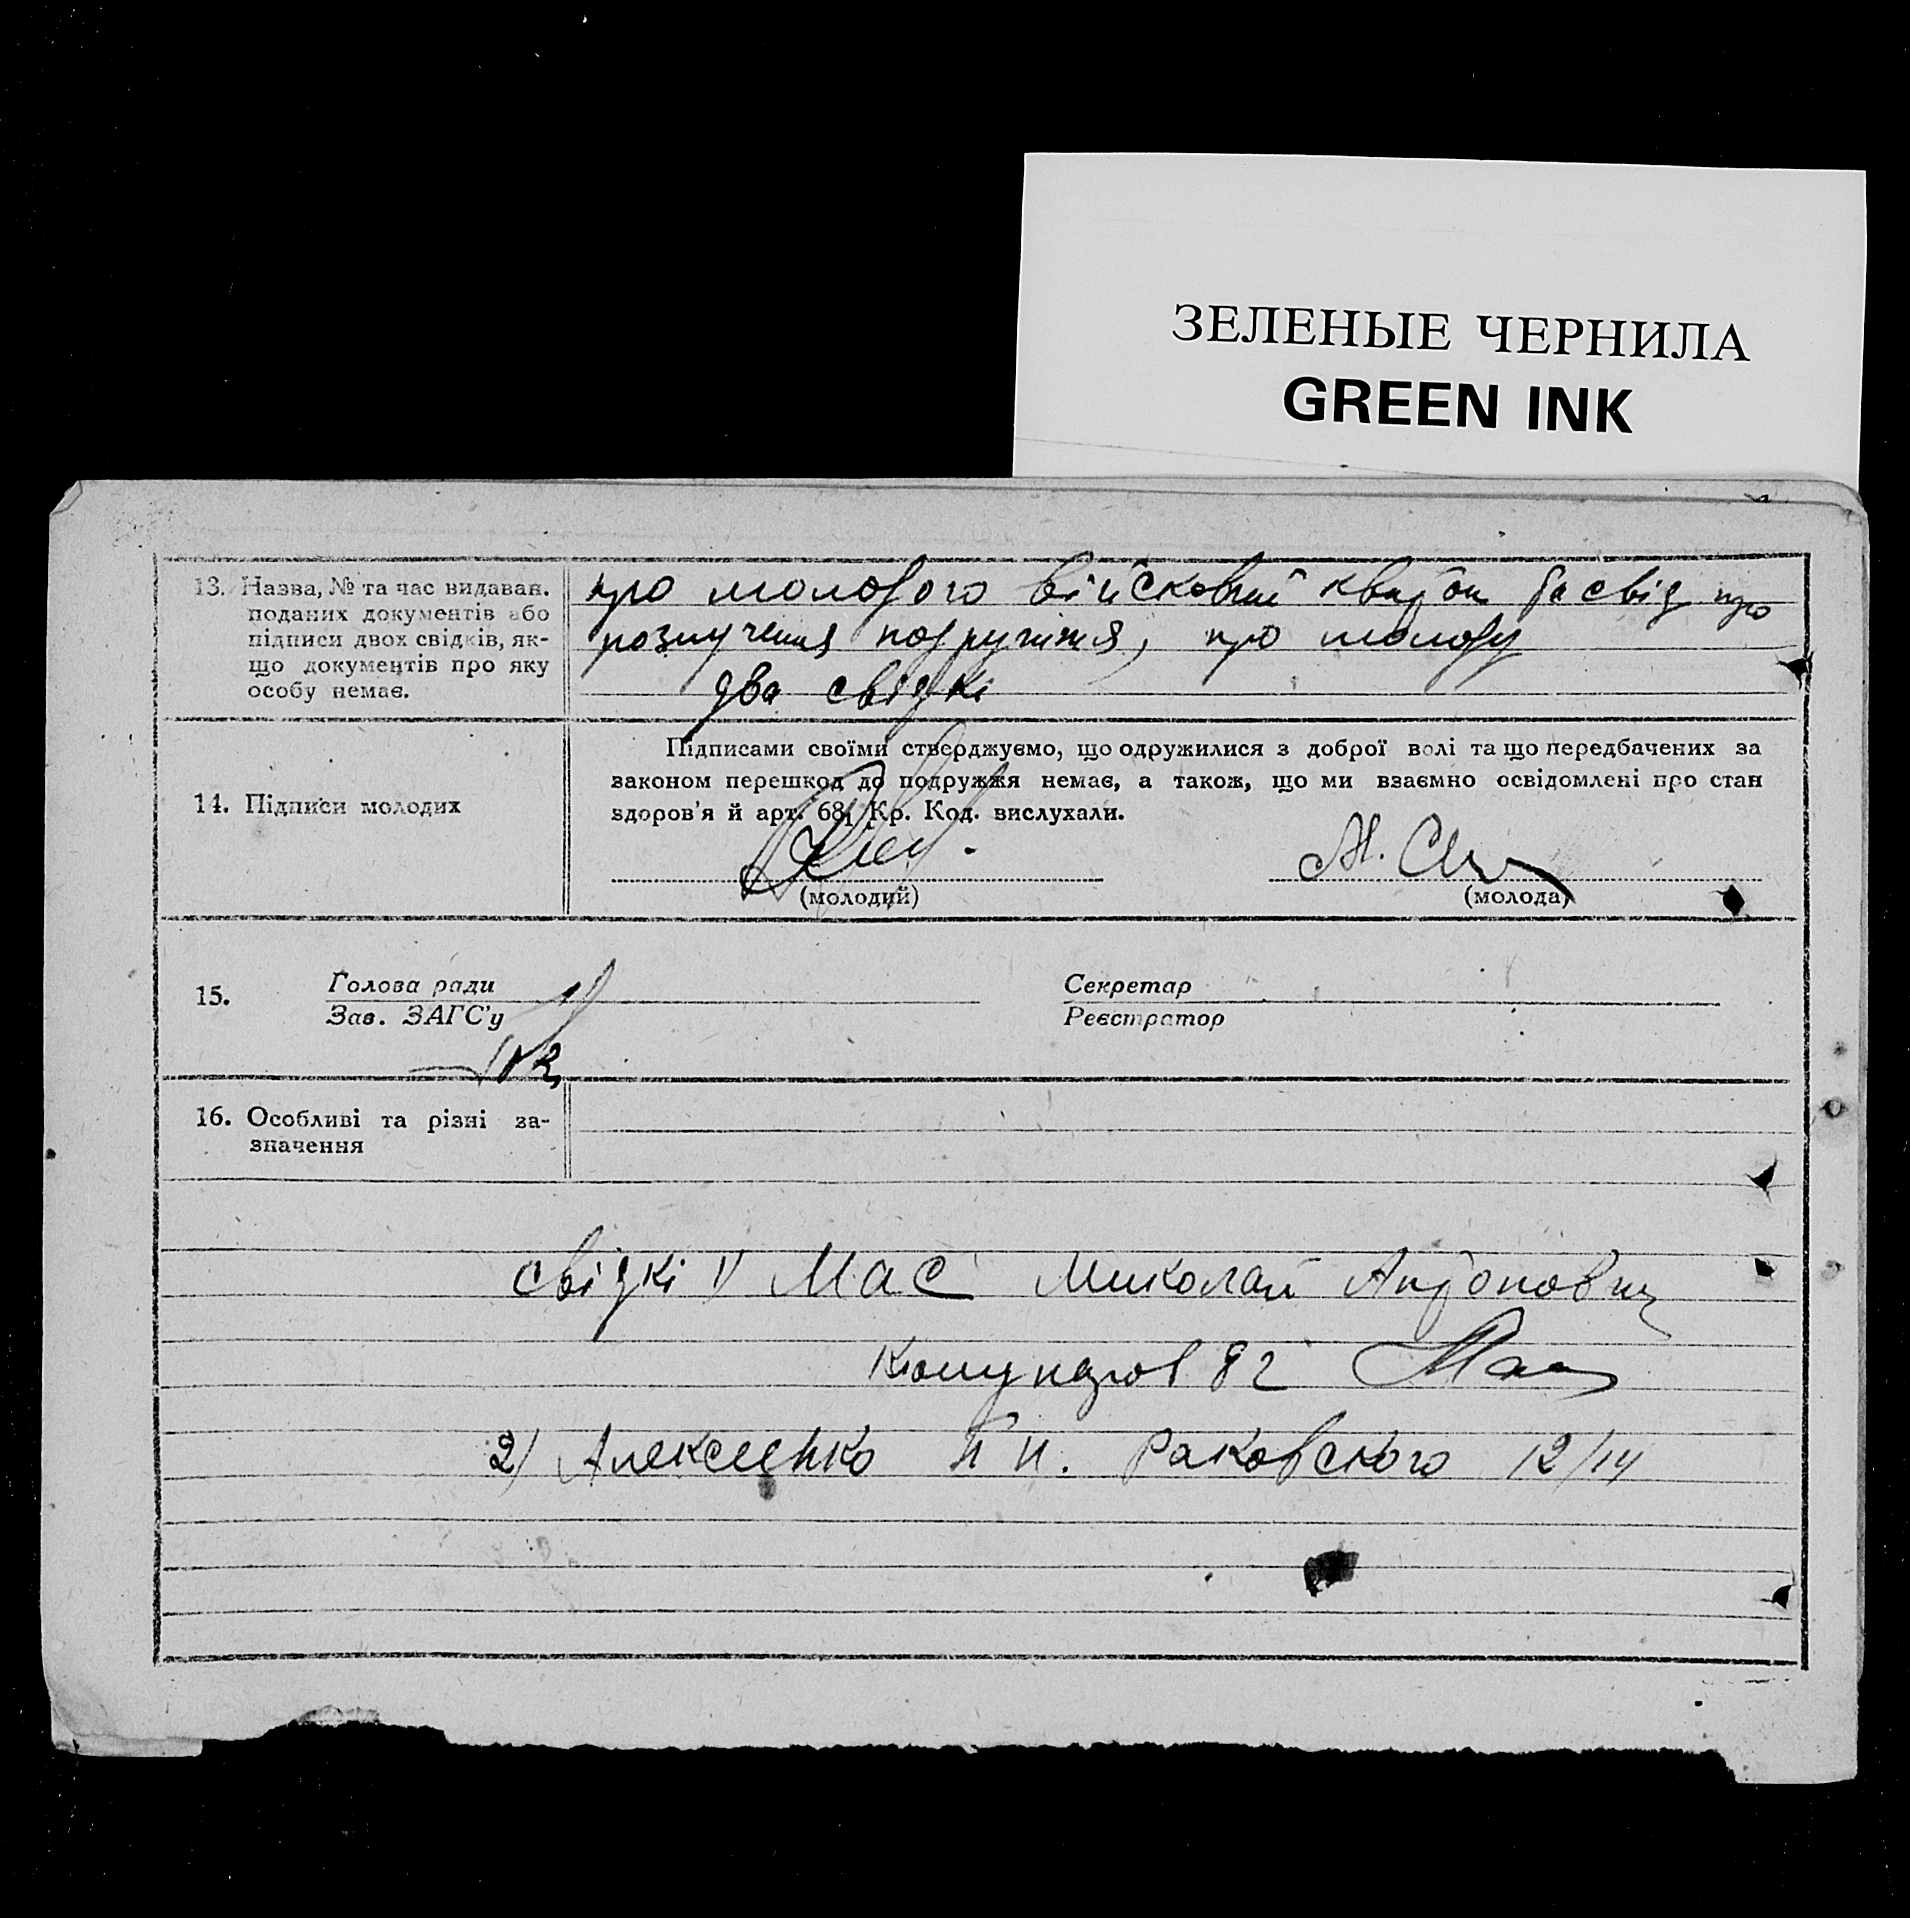 ЗЕЛЕНЫЕ ЧЕРНИЛА
GREEN INK
13. Назва, № та час видаван. поданих документів або підписи двох свідків, як-що документів про яку особу немає.
про молодого військовий квиток та свід про
розлучення подружжя, про молоду
два свідкі
14. Підписи молодих
Підписами своїми стверджуємо, що одружилися з доброї волі та що передбачених за
законом перешкод до подружжя немає, а також, що ми взаємно освідомлені про стан
здоров'я й арт. 68, Кр. Код. вислухали.
(молодий)
(молода)
15. Голова ради
Зав. ЗАГС'у
Секретар
Реєстратор
16. Особливі та різні за-
значення
свідкі 1) Мас Миколай Антонович
82
2) Алексеенко П н. Раковского 12/14